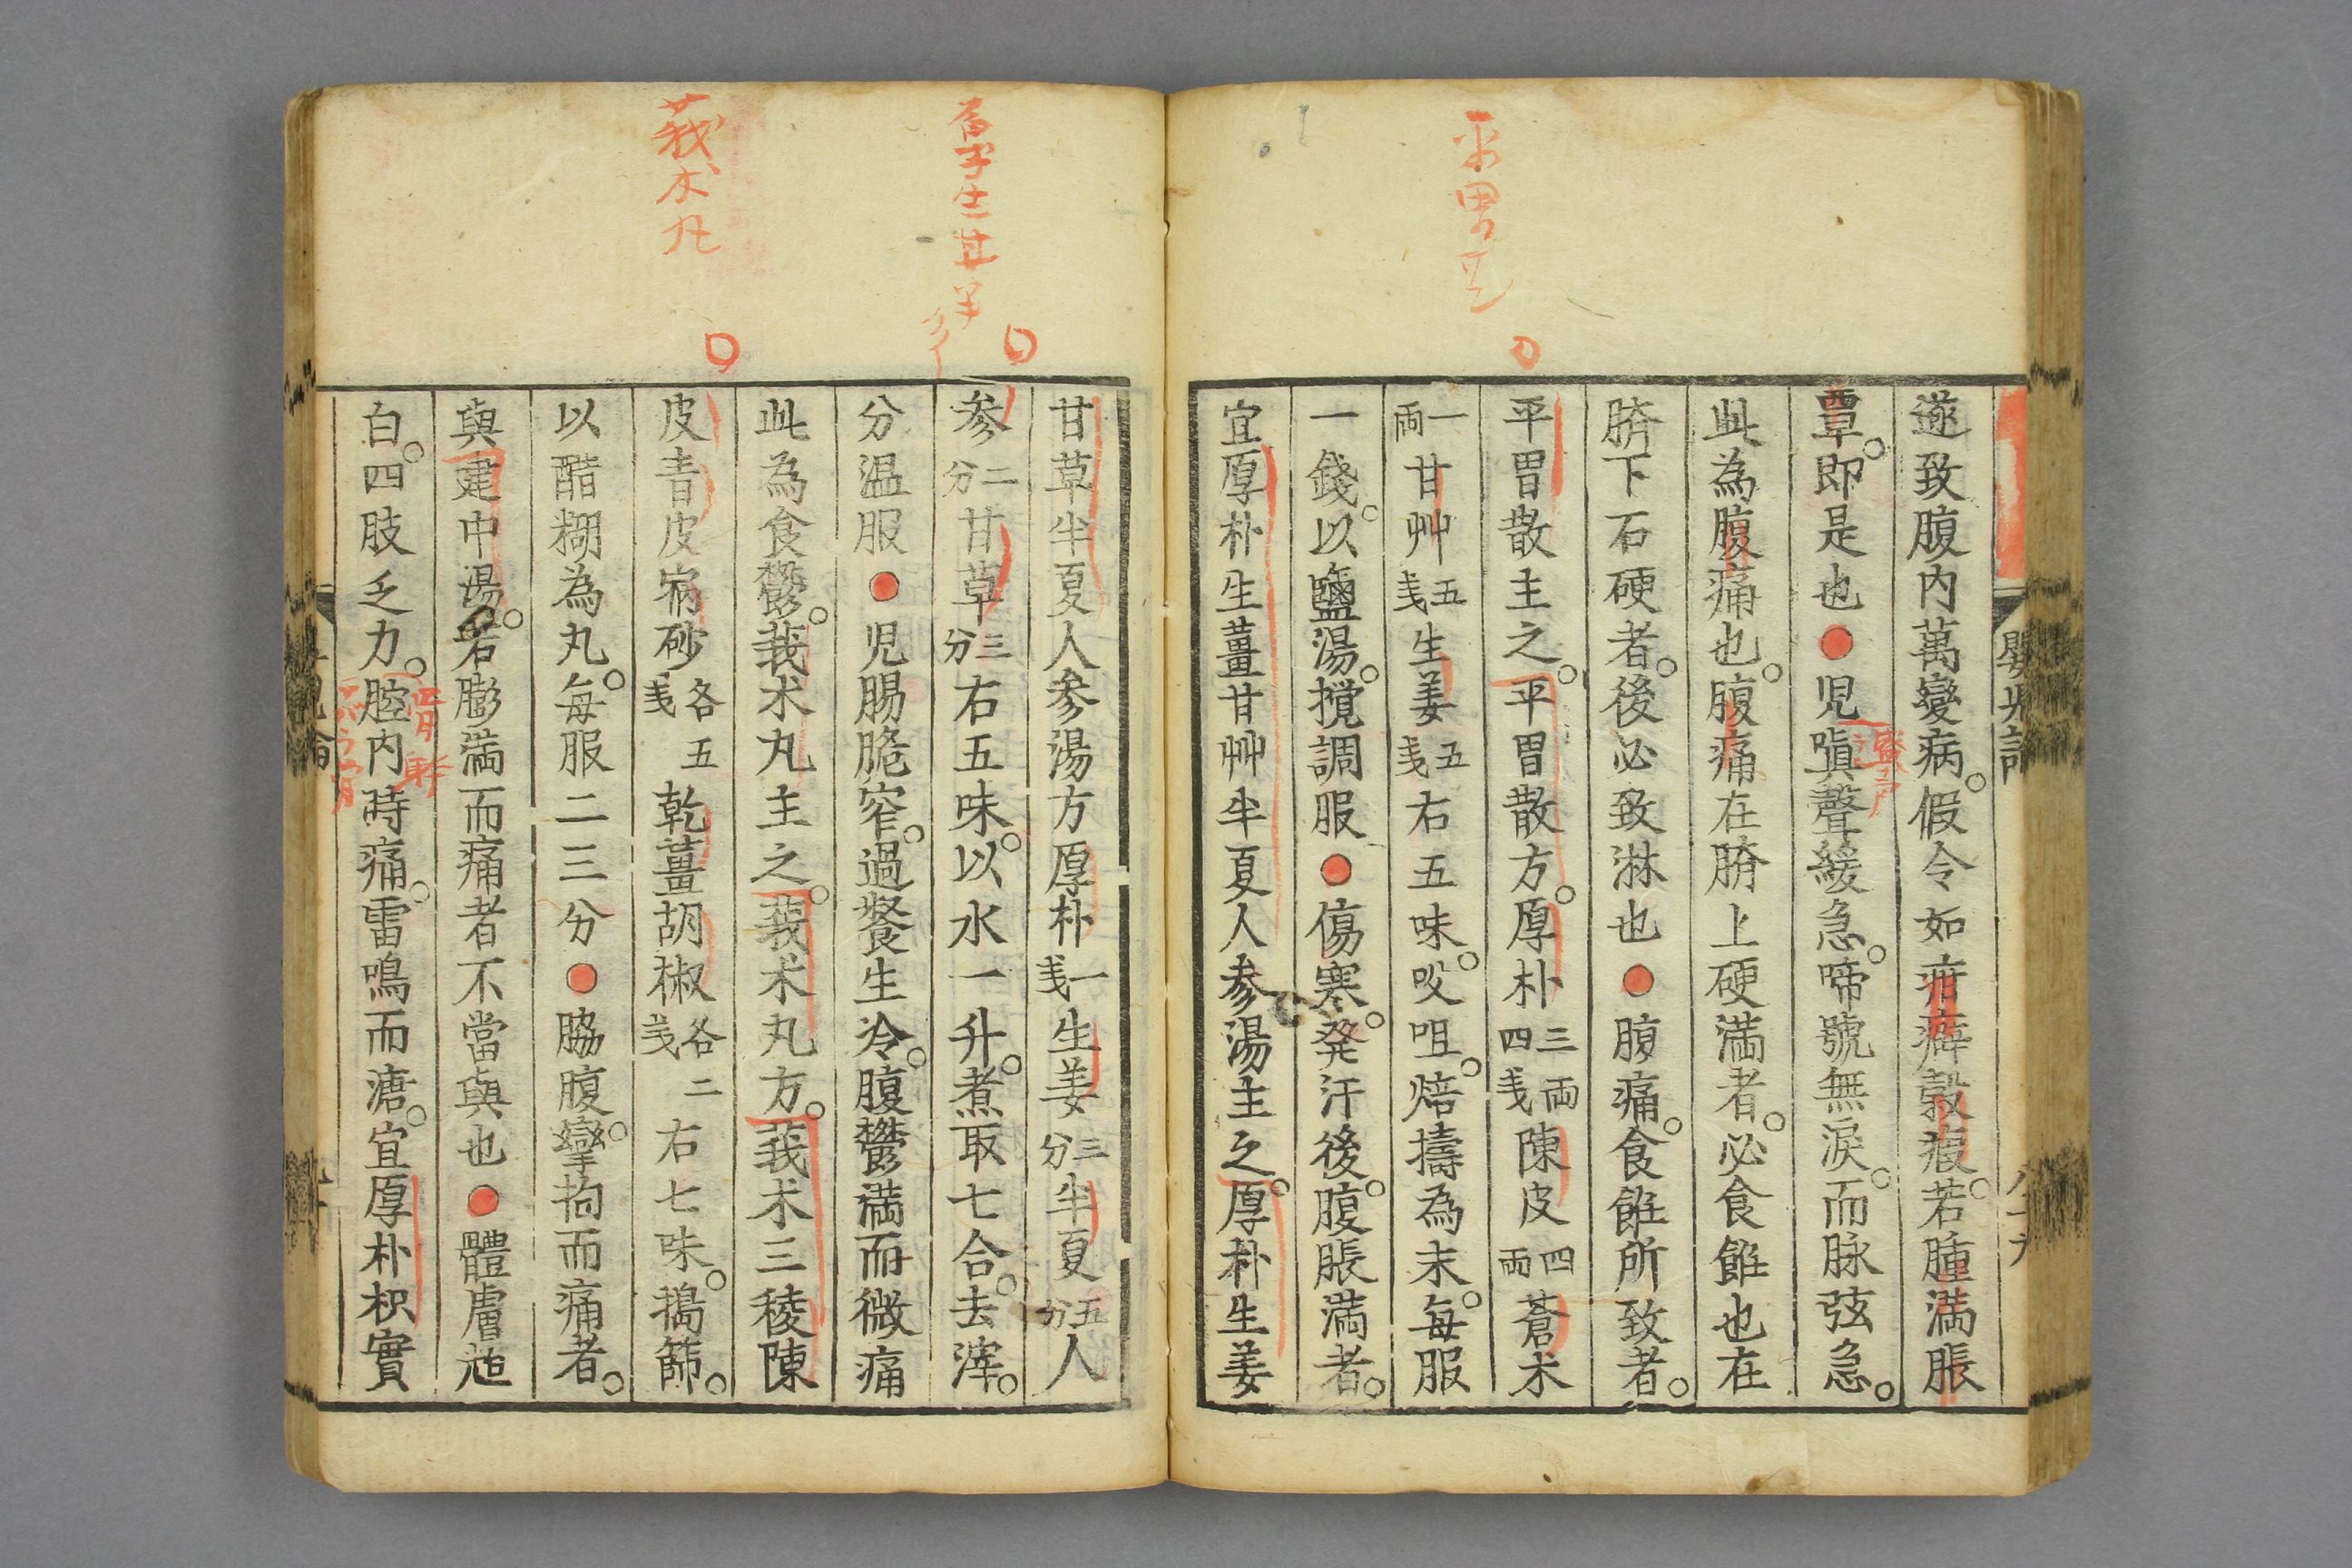 平胃散
遂致腹内萬變病。假令如疳癖穀瘕。若腫満脹
覃。即是也●児嗔聲緩急。啼號無涙。而脉弦急。
此為腹痛也。腹痛在臍上硬満者。必食餛也在
臍下石硬者。後必致淋也●腹痛。食餛所致者。
平胃散主之。平胃散方。厚朴三両四戔陳皮四両蒼术
一両甘艸五戔生姜五戔右五味。㕮咀。焙擣為末。每服
一錢。以鹽湯。攪調服●傷寒。発汗後。腹脹満者。
宜厚朴生薑甘艸半夏人参湯主之。厚朴生姜
莪术丸
甘草半夏人参湯方厚朴一戔生姜三分半夏五分人
参二分甘草三分右五味。以水一升。煮取七合。去滓。
分温服●児腸脆窄。過餐生冷。腹鬱満而微痛
此為食鬱。莪术丸主之。莪术丸方。莪术三稜陳
皮青皮宿砂各五戔乾薑胡椒各二戔右七味。搗篩。
以醋糊為丸。每服二三分●脇腹。攣拘而痛者。
與建中湯。若膨満而痛者不當與也●體膚尫
白。四肢乏力。腔内時痛。雷鳴而溏。宜厚朴枳實